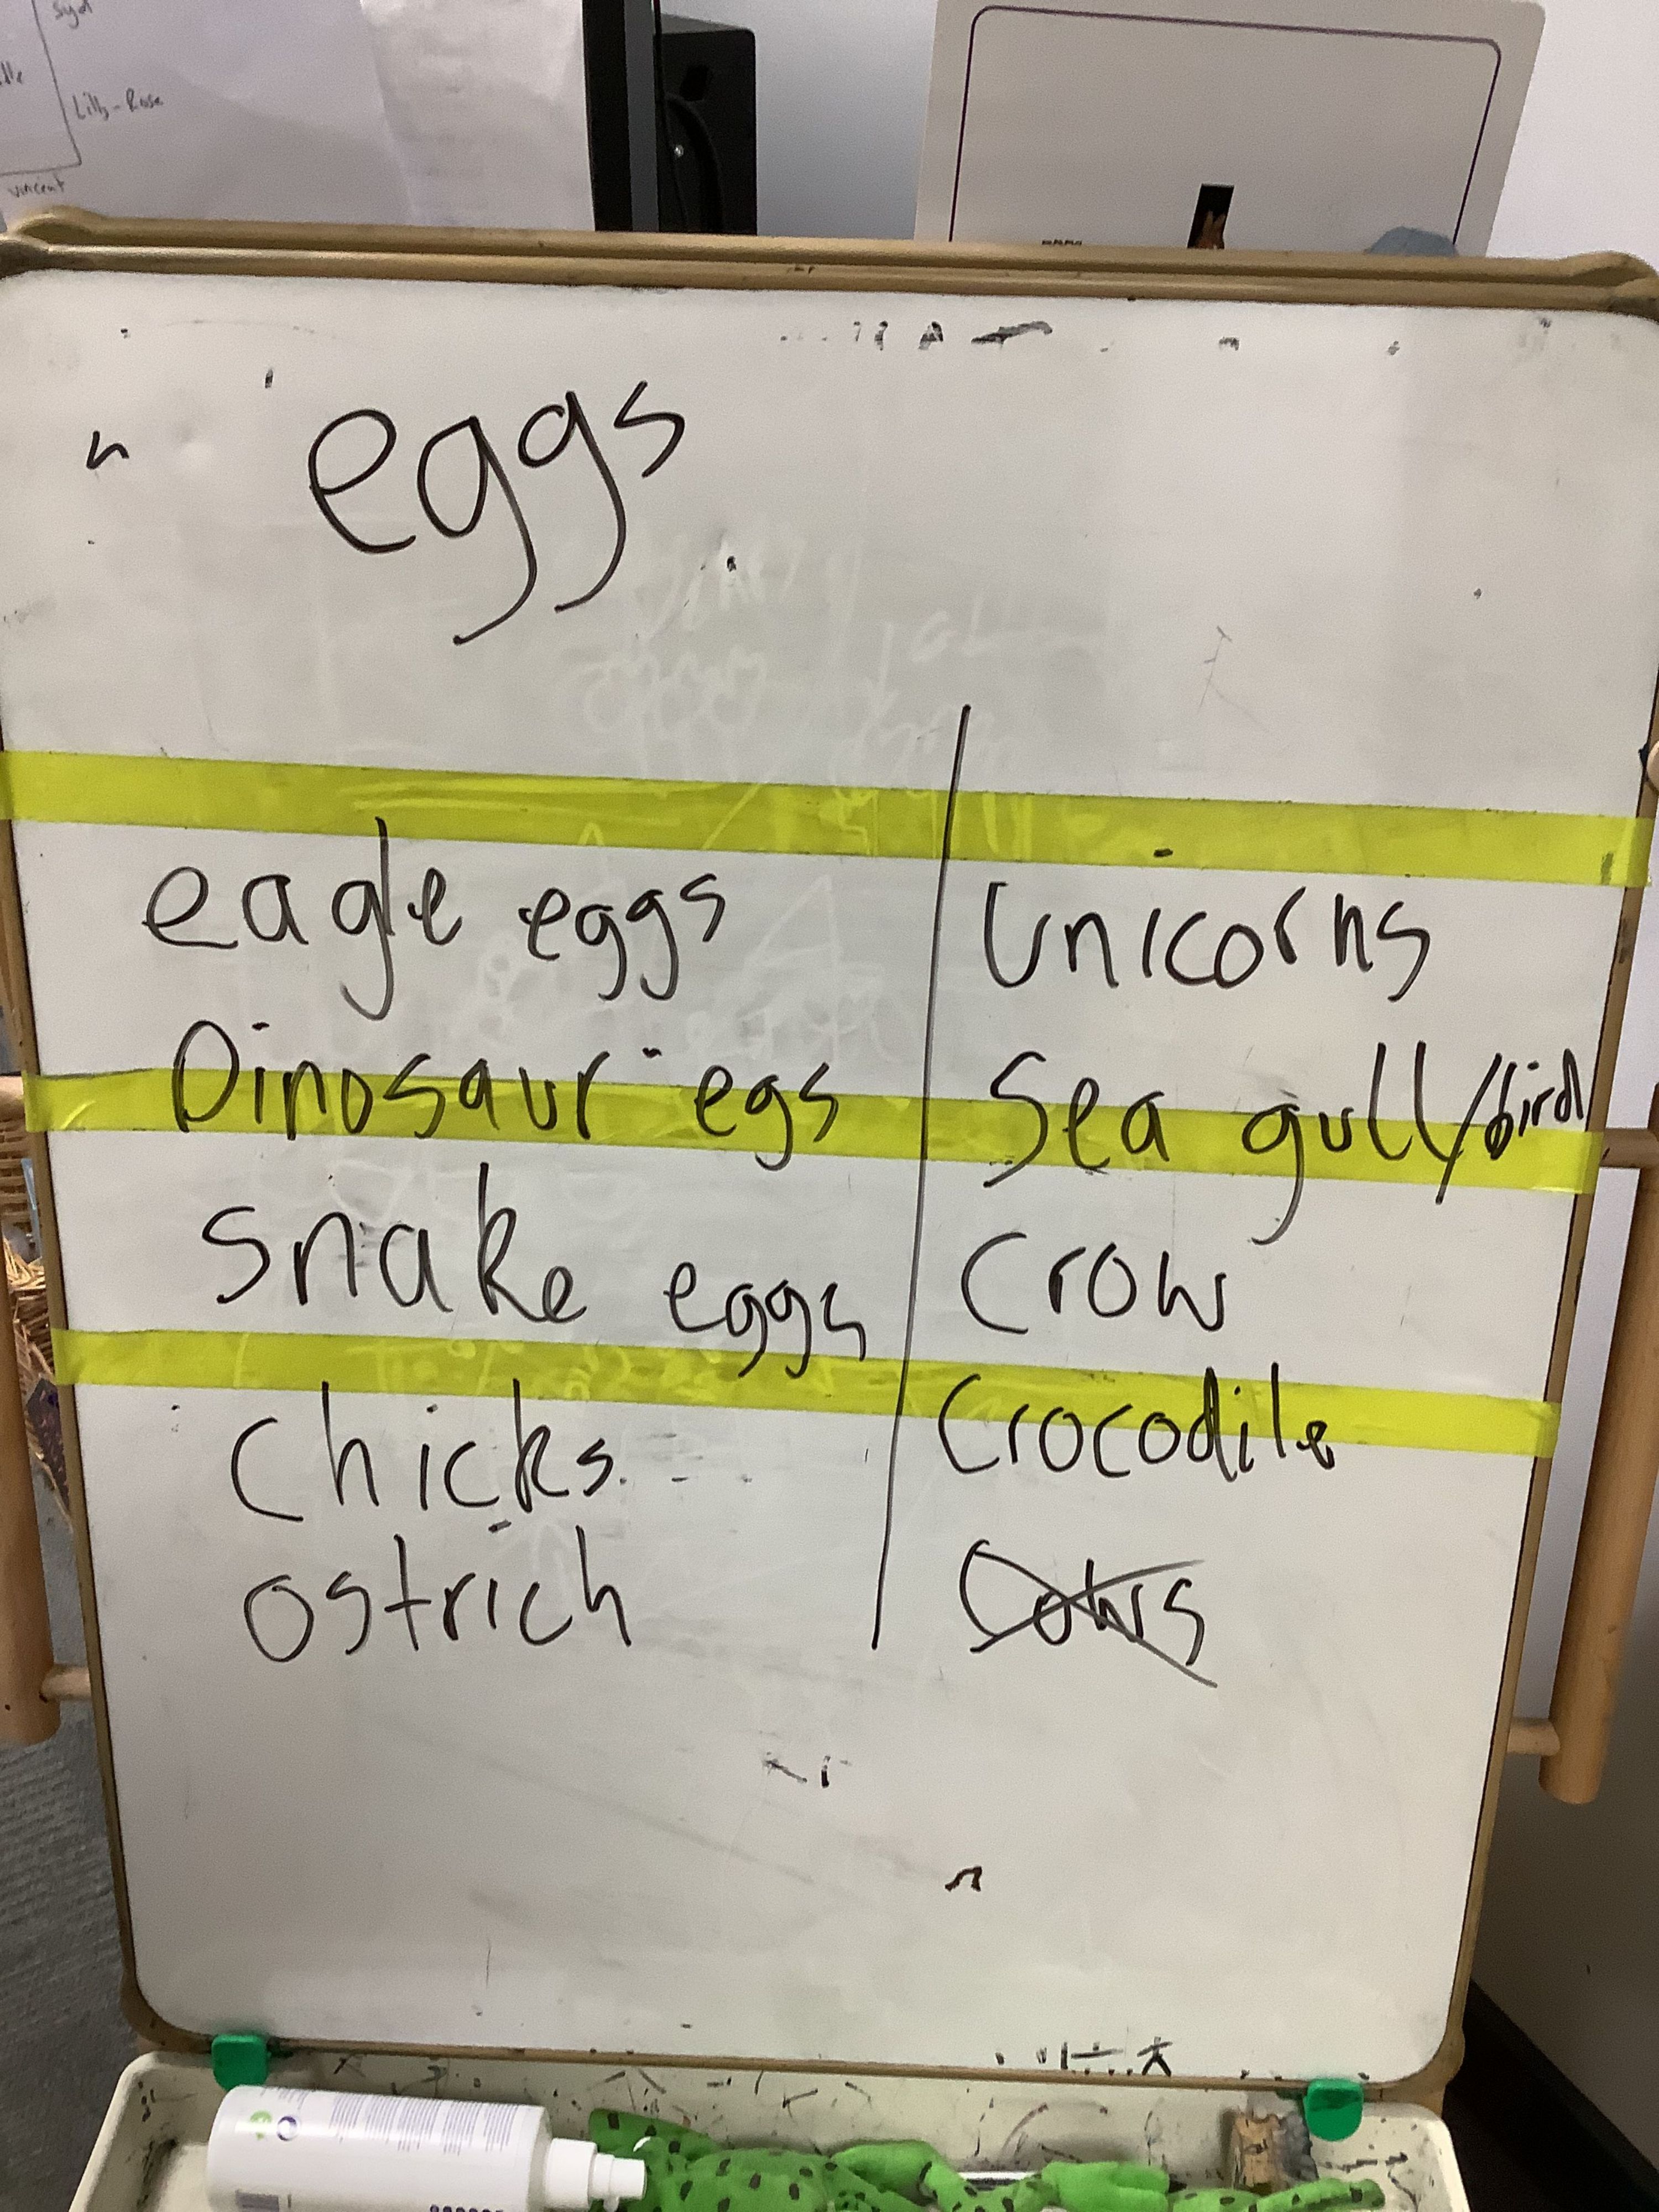 Lilly-Rose
vincent
eggs
eagle eggs
Dinosaur egs
Snake eggs
chicks
ostrich
Unicorns
Sea gull/bird
Crow
Crocodile
Cows